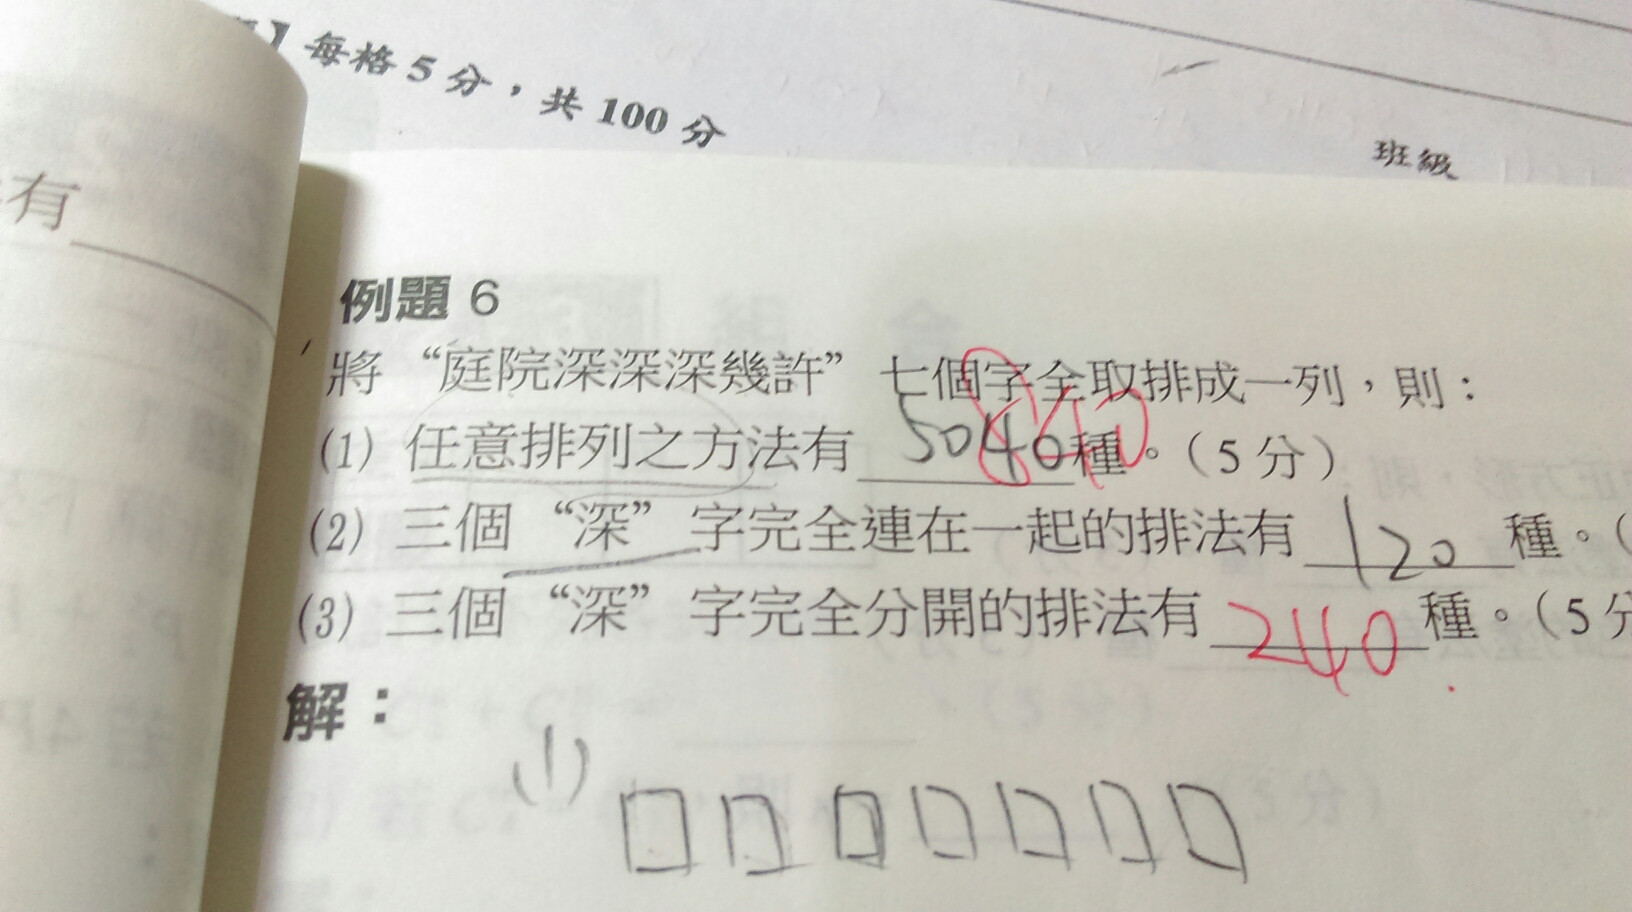 】每格 5 分，共 100 分
班級
有
例題 6
將 “庭院深深深幾許” 七個字全取排成一列，則：
(1) 任意排列之方法有 5040 840 種。(5 分)
(2) 三個 “深” 字完全連在一起的排法有 120 種。(
(3) 三個 “深” 字完全分開的排法有 240 種。(5 分
解：
(1) □ □ □ □ □ □ □